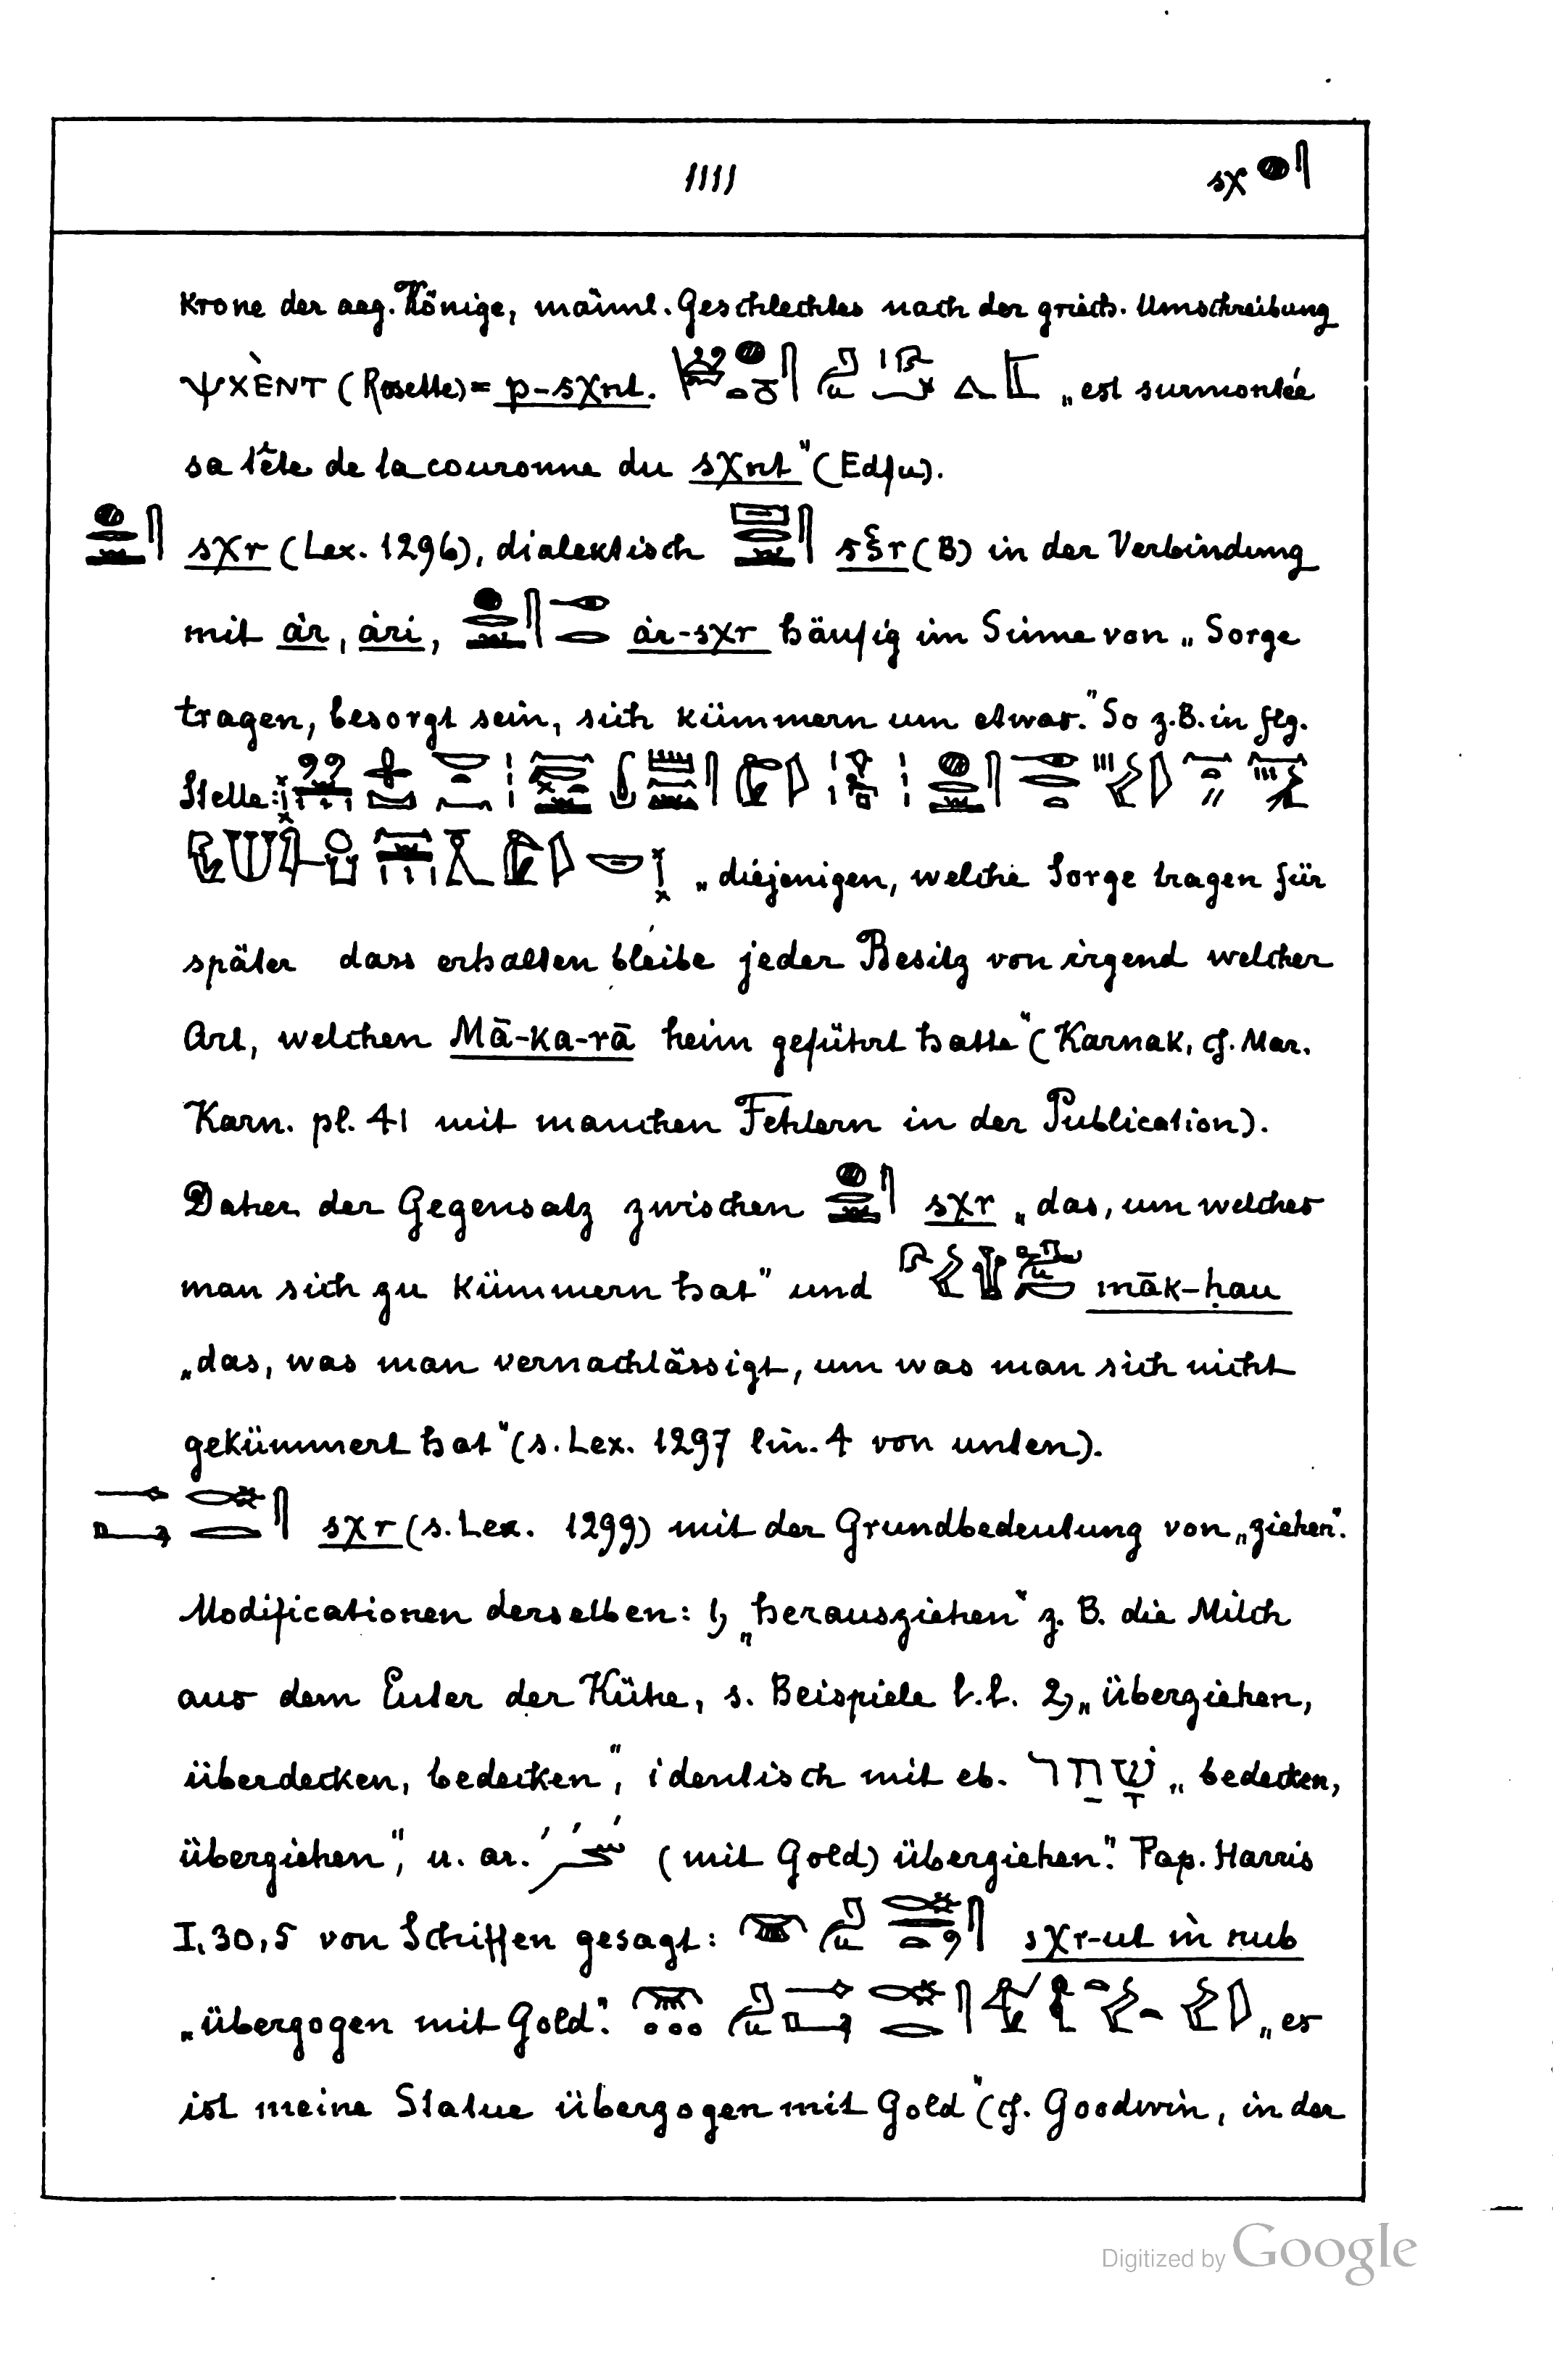 1111 sχ
Krone der aeg. Könige, männl. Geschlechtes nach der griech. Umschreibung
ΨΧÈΝΤ (Rosette) = p-sχnt. „est surmontée
sa tête de la couronne du sχnt" (Edfu).
sχr (Lex. 1296), dialektisch s§r (B) in der Verbindung
mit ȧr, ȧri, ȧr-sχr häufig im Sinne von „Sorge
tragen, besorgt sein, sich kümmern um etwas." So z.B. in flg.
Stelle:
„diejenigen, welche Sorge tragen für
später dass erhalten bleibe jeder Besitz von irgend welcher
Art, welchen Mā-ka-rā heim geführt hatte" (Karnak, cf. Mar.
Karn. pl. 41 mit manchen Fehlern in der Publication).
Daher der Gegensatz zwischen sχr „das, um welches
man sich zu kümmern hat" und māk-ḥau
„das, was man vernachlässigt, um was man sich nicht
gekümmert hat" (s. Lex. 1297 lin. 4 von unten).
sχr (s. Lex. 1299) mit der Grundbedeutung von „ziehen".
Modificationen derselben: 1, „herausziehen" z. B. die Milch
aus dem Euter der Kühe, s. Beispiele l.l. 2, „überziehen,
überdecken, bedecken", identisch mit eb. שָׁחַר „bedecken,
überziehen", u. ar. (mit Gold) überziehen". Pap. Harris
I, 30, 5 von Schiffen gesagt: sχr-ut m nub
„überzogen mit Gold". „es
ist meine Statue überzogen mit Gold" (cf. Goodwin, in der
Digitized by Google